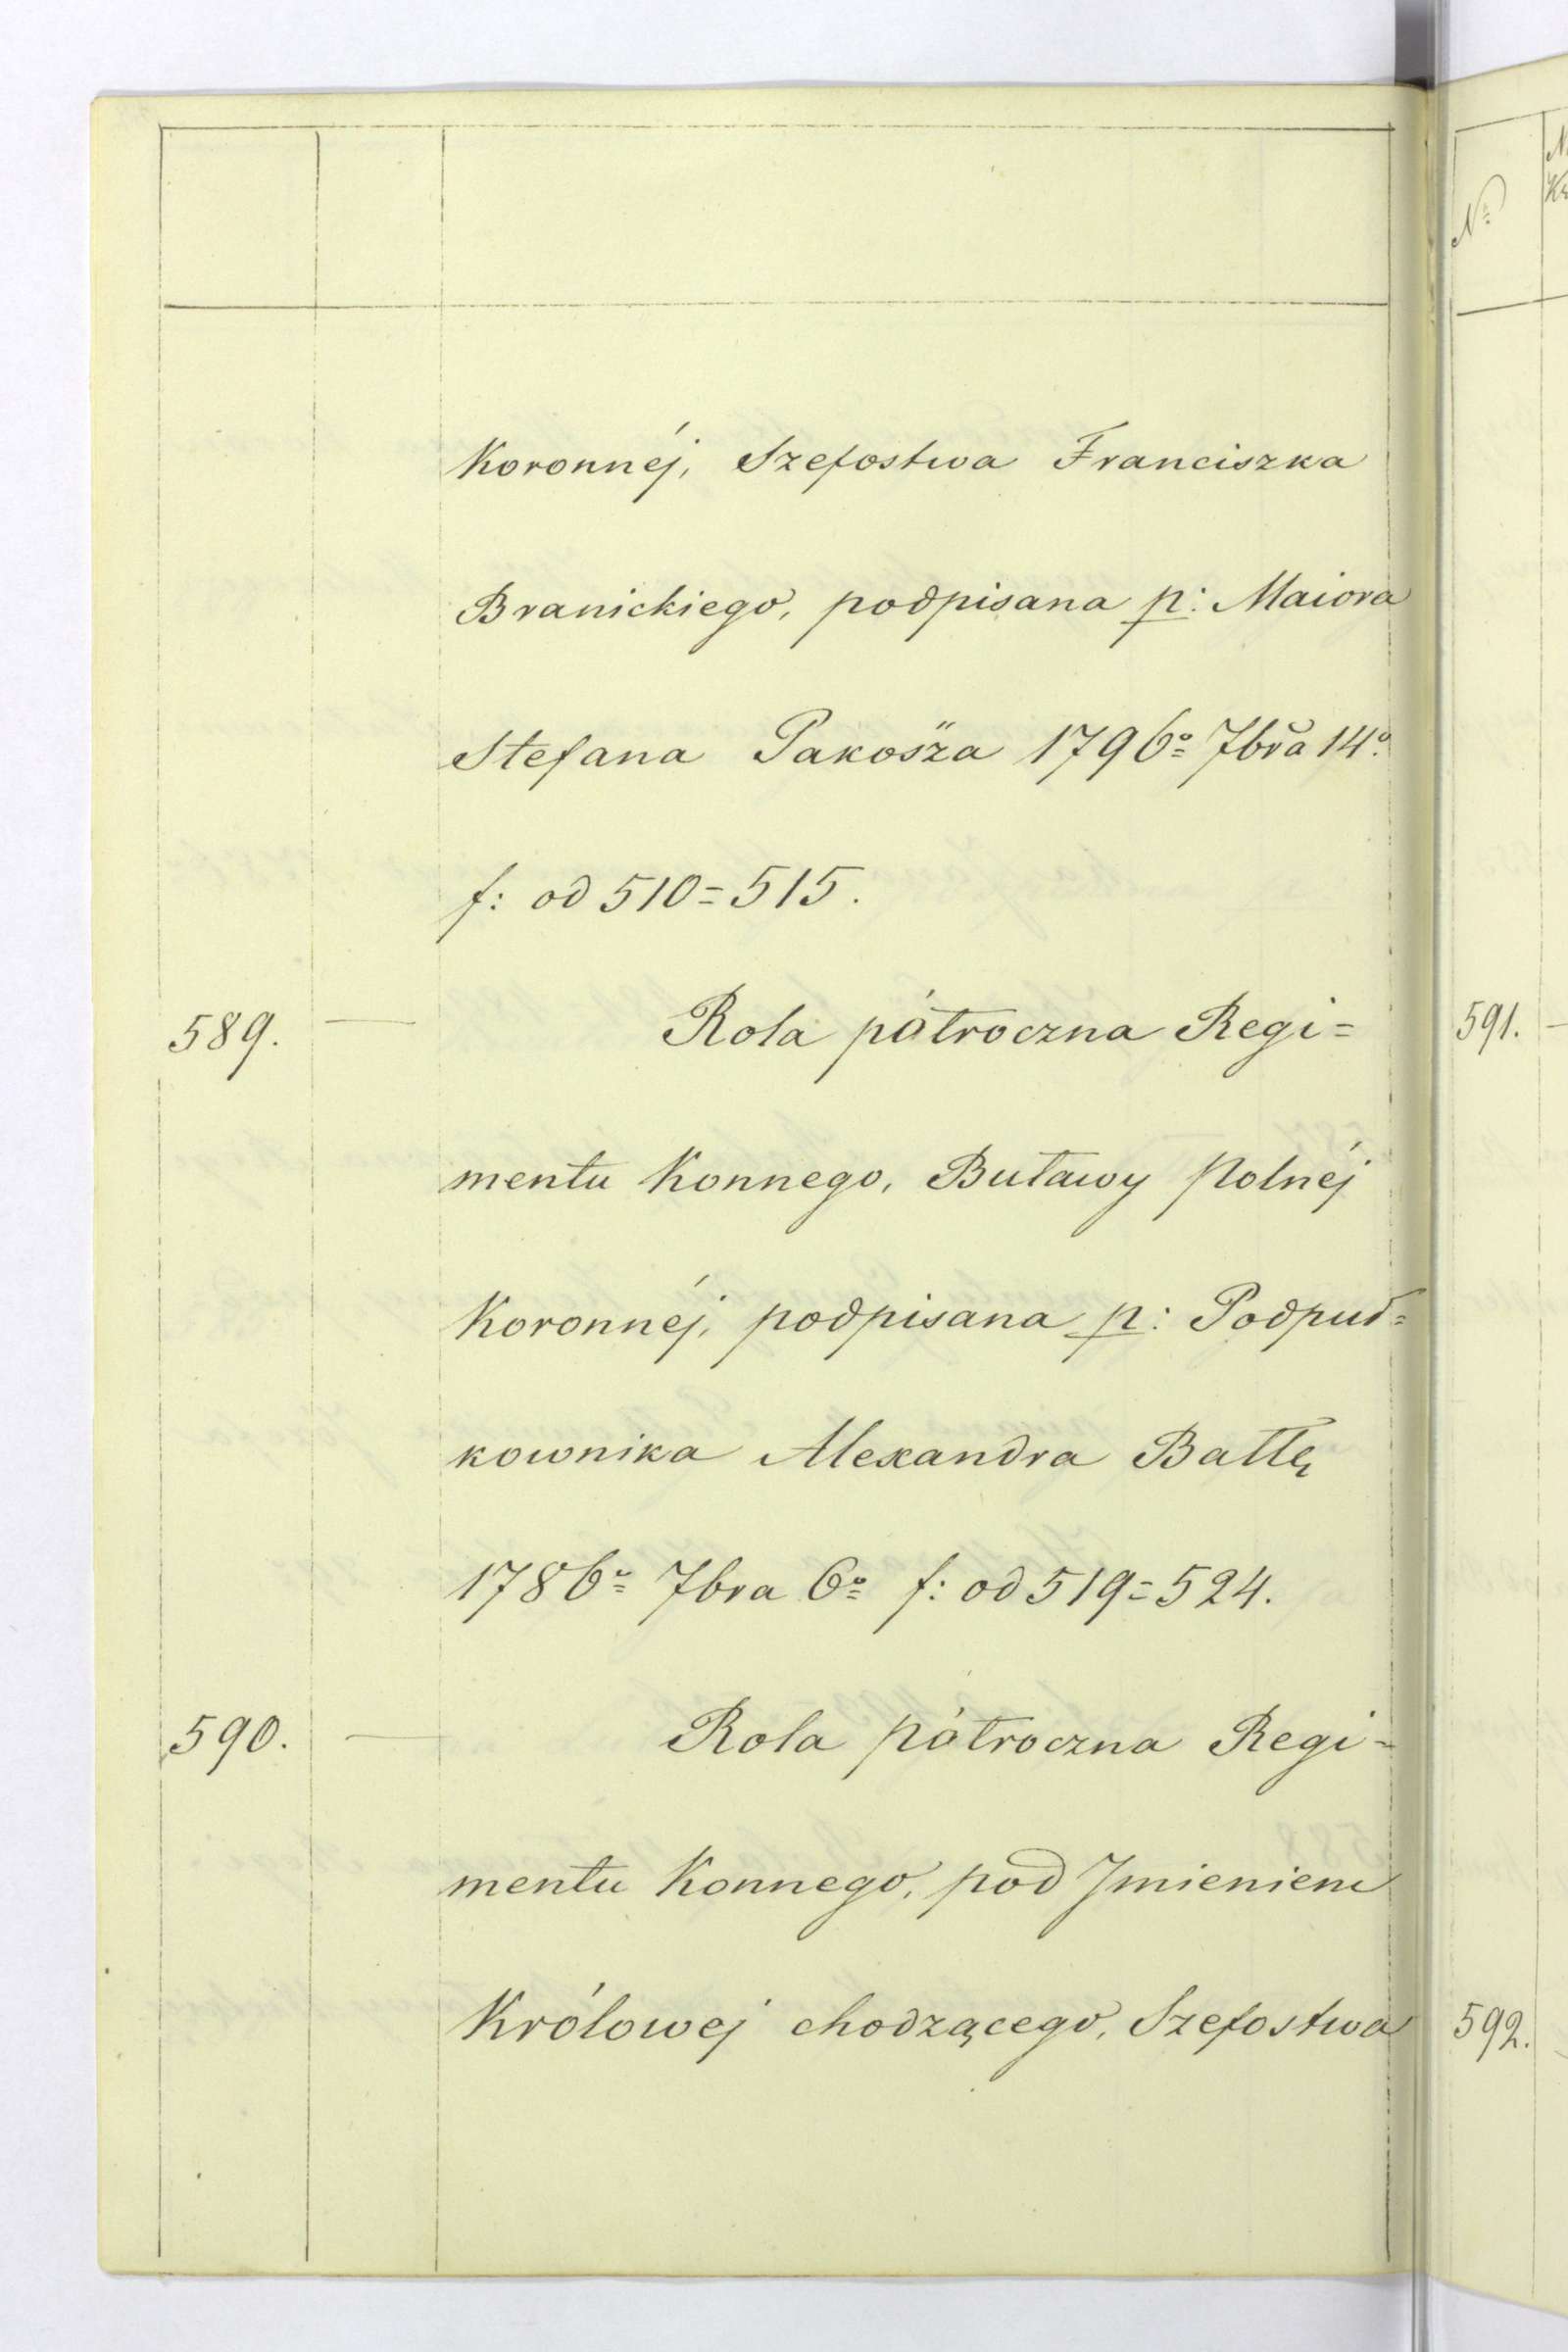 Koronnéj, Szefostwa Franciszka
Branickiego, podpisana p: Maiora
Stefana Pakosza 1796º 7bra 14º
f: od 510=515.
589. — Rola półroczna Regi=
mentu Konnego, Buławy Polnéj
Koronnéj, podpisana p: Podpuł=
kownika Alexandra Batłę
1786º 7bra 6º f: od 519=524.
590. — Rola półroczna Regi=
mentu Konnego, pod Jmieniem
Królowej chodzącego, Szefostwa
Nº
591.
592.